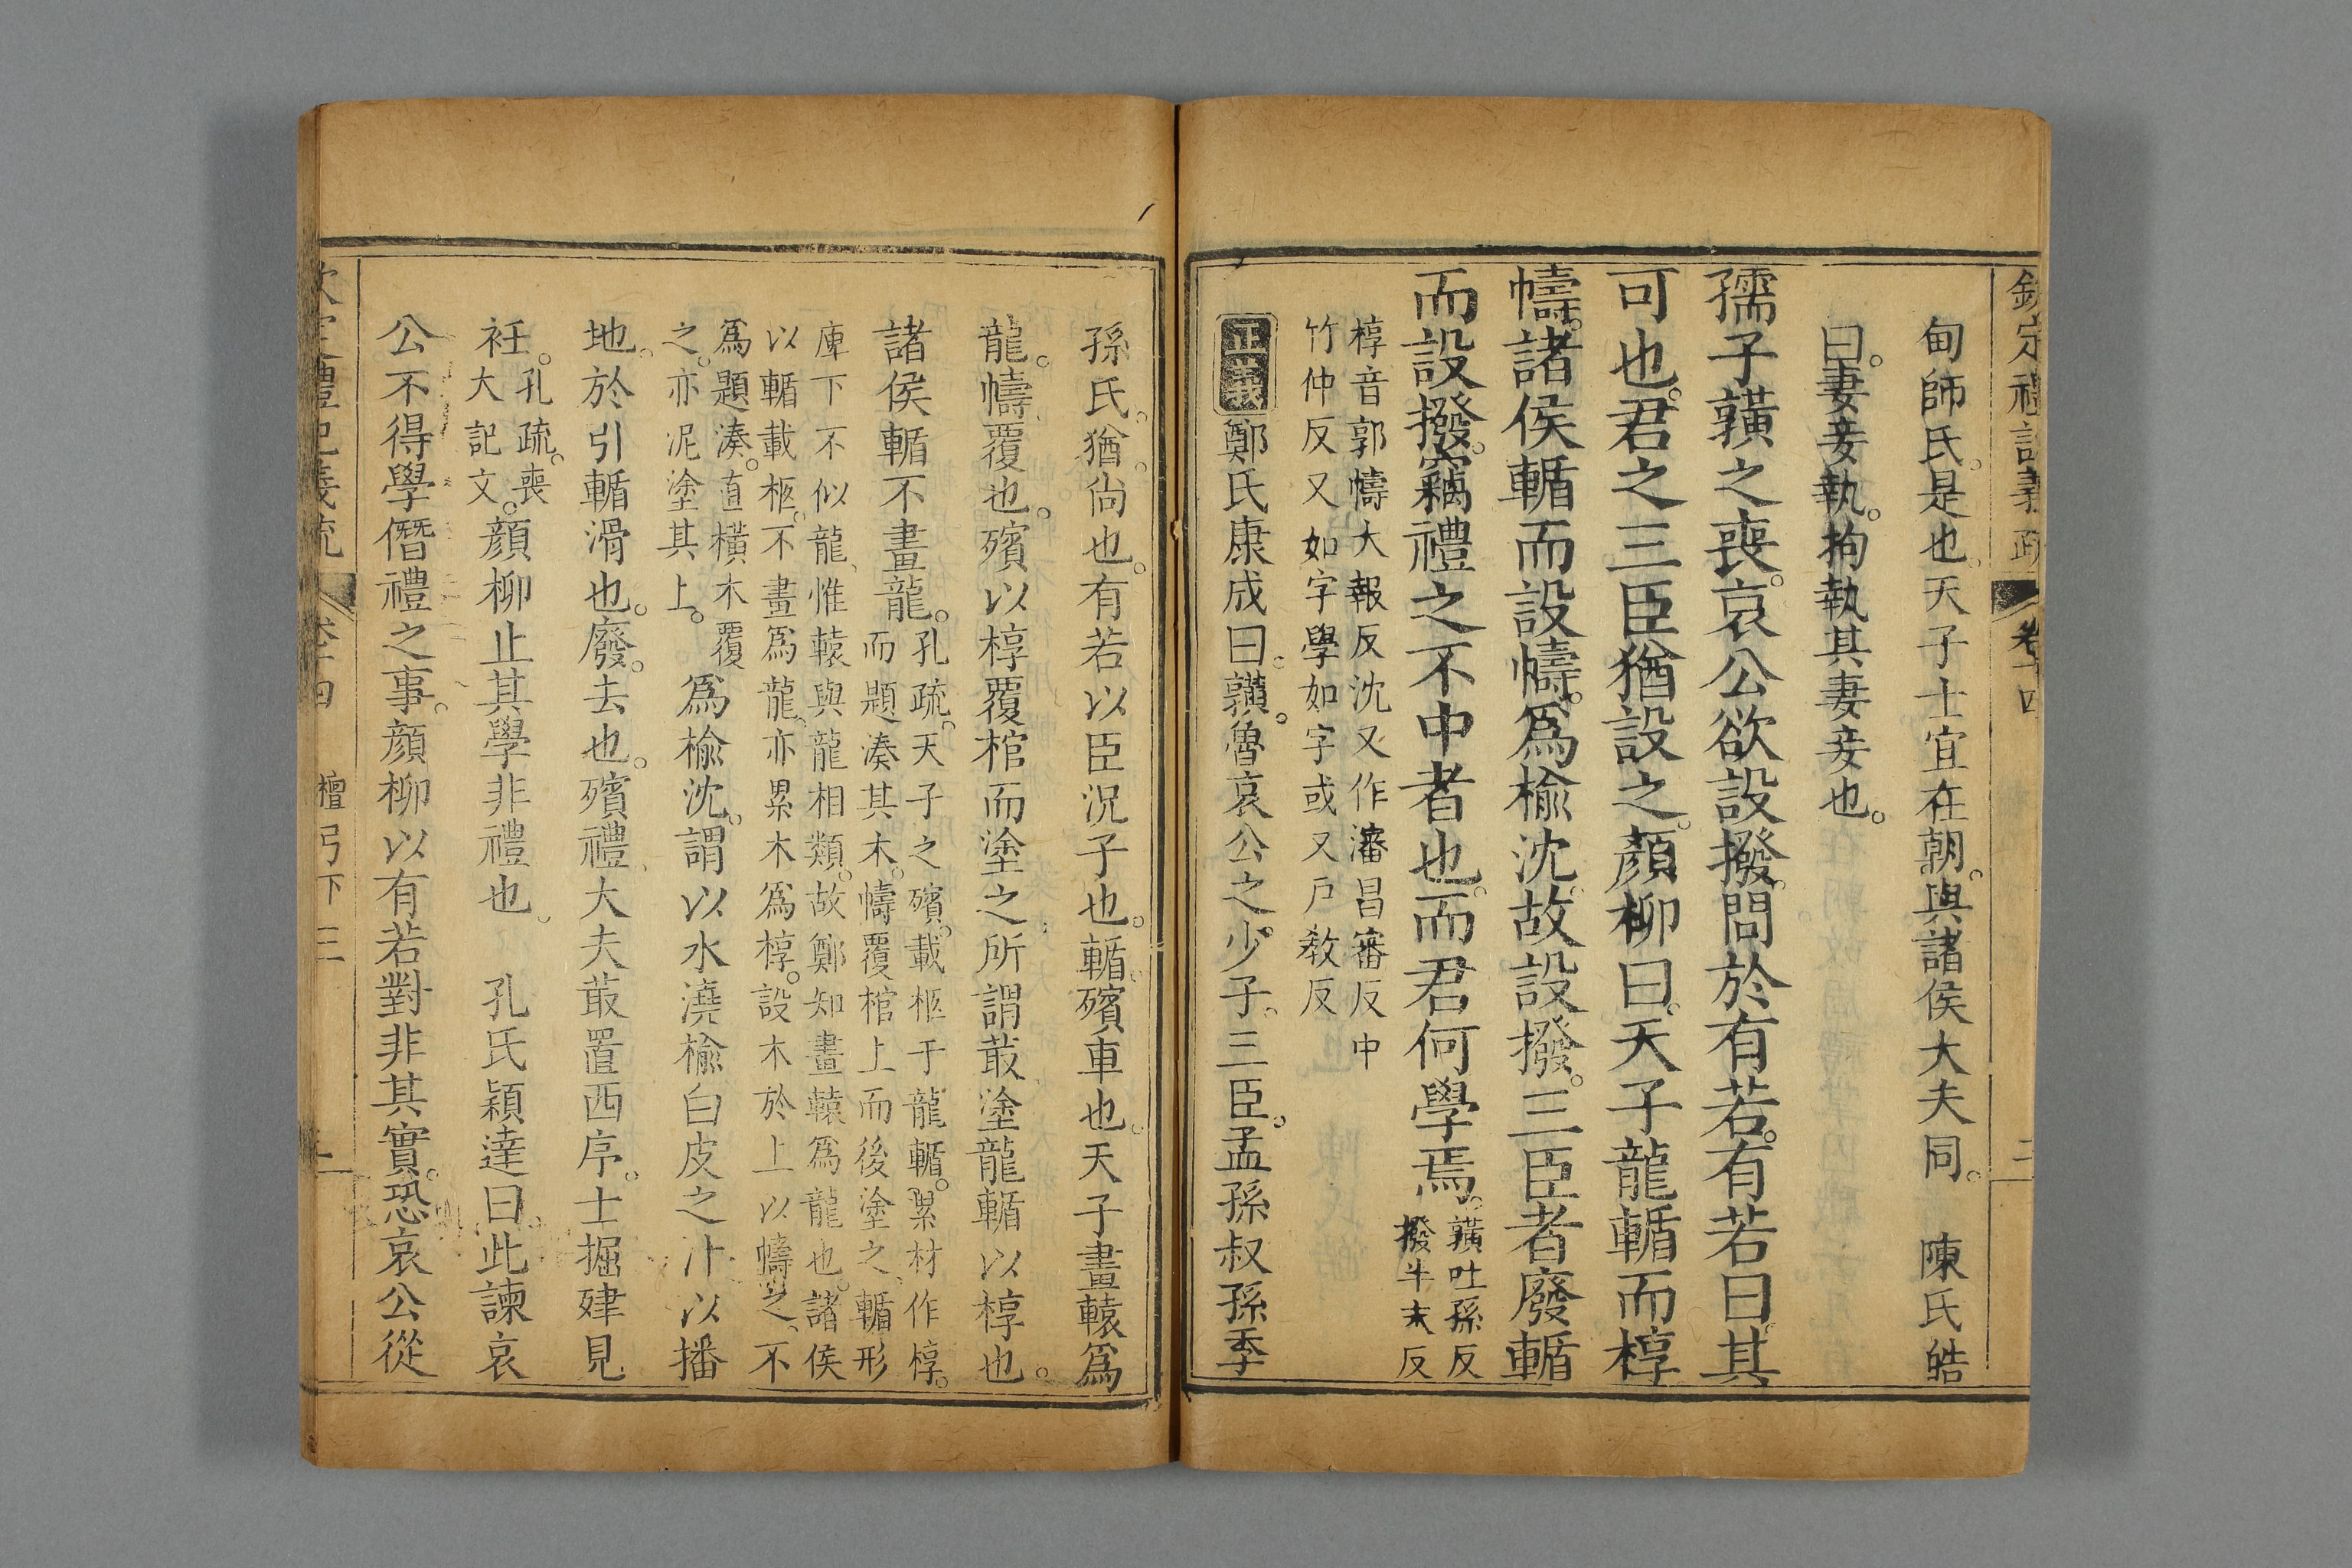 欽定禮記義疏 卷十四 二
甸師氏。是也。天子士宜在朝。與諸侯大夫同。 陳氏皓
曰。妻妾執。拘執其妻妾也。
孺子䵍之喪。哀公欲設撥。問於有若。有若曰。其
可也。君之三臣猶設之。顏柳曰。天子龍輴而椁
幬。諸侯輴而設幬。爲楡沈。故設撥。三臣者廢輴
而設撥。竊禮之不中者也。而君何學焉。
䵍吐孫反
撥半末反
椁音郭幬大報反沈又作瀋昌審反中
竹仲反又如字學如字或又戸敎反
正義 鄭氏康成曰。䵍。魯哀公之少子。三臣。孟孫叔孫季
孫氏。猶。尙也。有若以臣況子也。輴。殯車也。天子畫轅爲
龍。幬。覆也。殯以椁覆棺而塗之。所謂菆塗龍輴以椁也。
諸侯輴不畫龍。
孔疏。天子之殯。載柩于龍輴。累材作椁。
而題湊其木。幬覆棺上而後塗之。輴形
庳下不似龍。惟轅與龍相類。故鄭知畫轅爲龍也。諸侯
以輴載柩。不畫爲龍。亦累木爲椁。設木於上以幬之。不
爲題湊。直橫木覆
之。亦泥塗其上。
爲楡沈。謂以水澆楡白皮之汁以播
地。於引輴滑也。廢。去也。殯禮。大夫菆置西序。士掘肂見
衽。
孔疏。喪
大記文。
顏柳止其學非禮也。 孔氏穎達曰。此諫哀
公不得學僭禮之事。顏柳以有若對非其實。恐哀公從
欽定禮記義疏 卷十四 檀弓下三